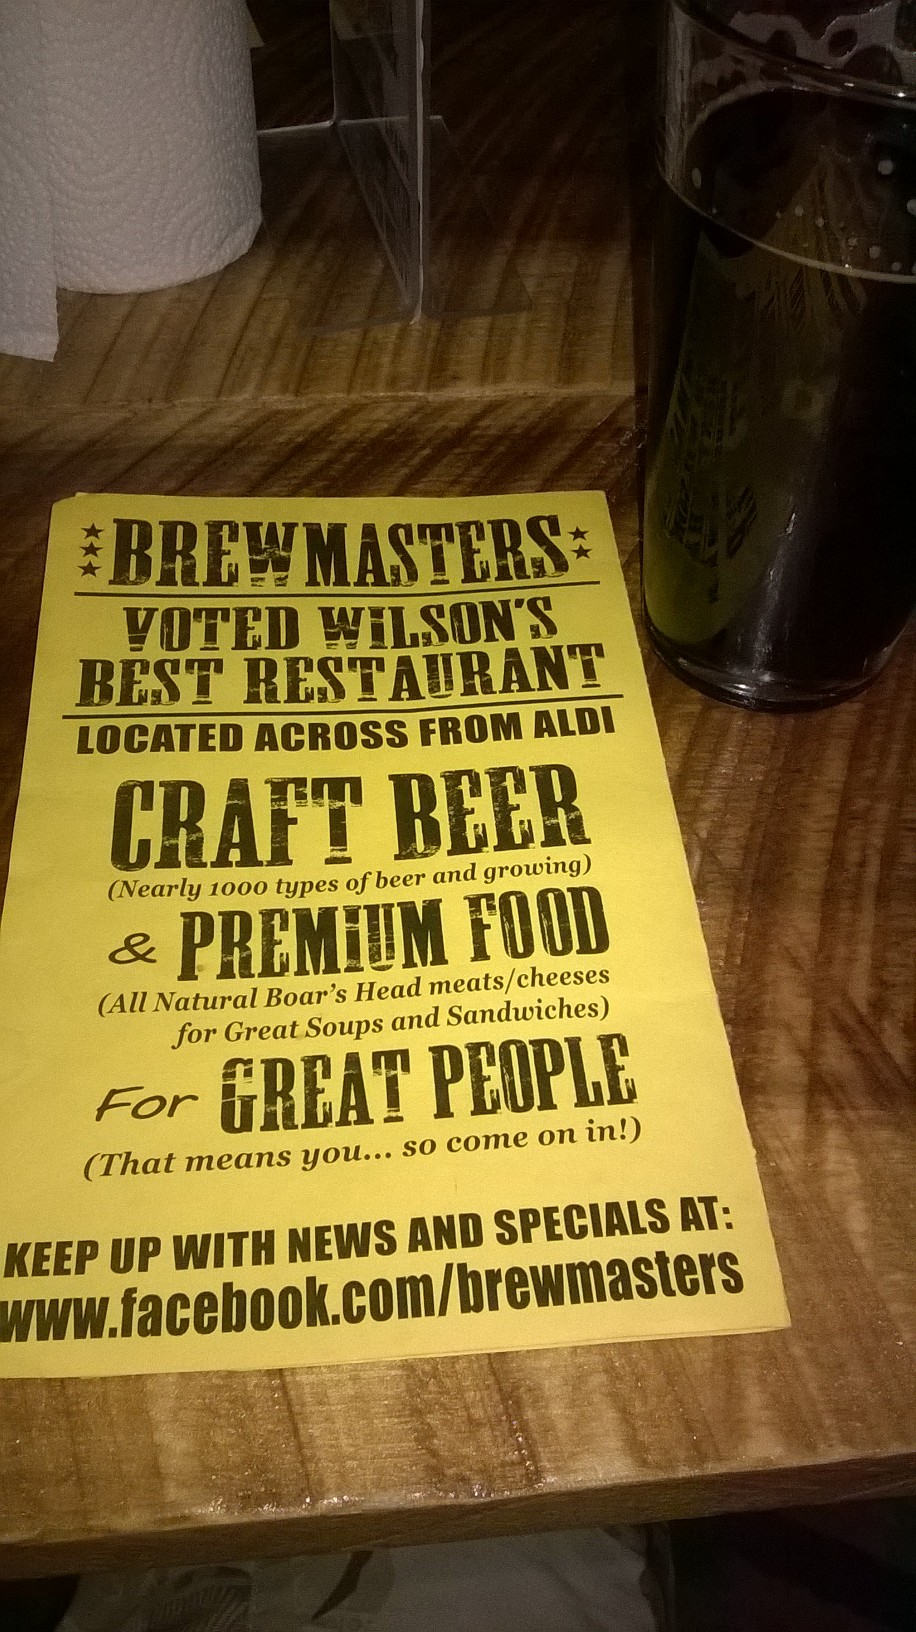 BREWMASTERS
VOTED WILSON'S
BEST RESTAURANT
LOCATED ACROSS FROM ALDI
CRAFT BEER
(Nearly 1000 types of beer and growing)
& PREMIUM FOOD
(All Natural Boar's Head meats/cheeses
for Great Soups and Sandwiches)
For GREAT PEOPLE
(That means you... so come on in!)
KEEP UP WITH NEWS AND SPECIALS AT:
www.facebook.com/brewmasters